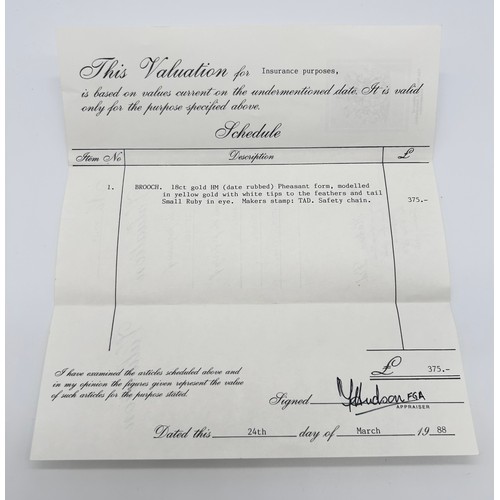 This Valuation for Insurance purposes,
is based on values current on the undermentioned date. It is valid
only for the purpose specified above.
Schedule
Item No Description £
1. BROOCH. 18ct gold HM (date rubbed) Pheasant form, modelled
in yellow gold with white tips to the feathers and tail
Small Ruby in eye. Makers stamp: TAD. Safety chain. 375.-
£ 375.-
I have examined the articles scheduled above and
in my opinion the figures given represent the value
of such articles for the purpose stated.
Signed Hudson FGA
APPRAISER
Dated this 24th day of March 19 88